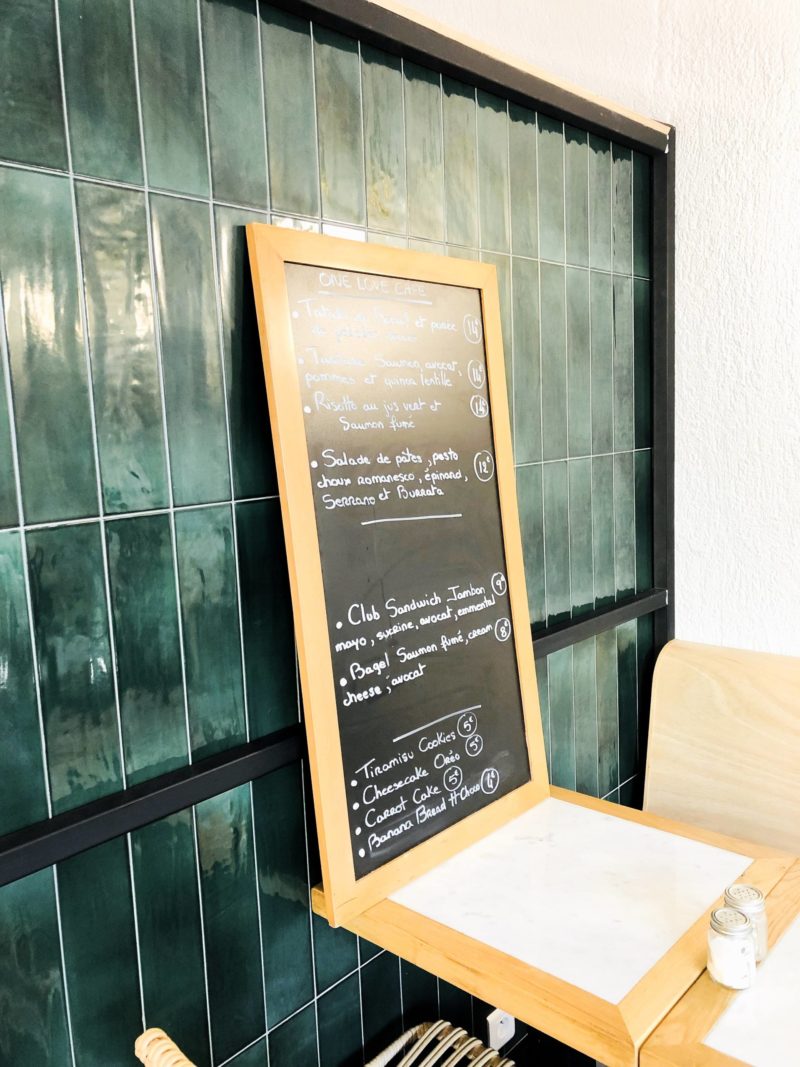 ONE LOVE CAFE
• et purée 14€
de
• Saumon, avocat, 14€
pommes et quinoa lentille
• Risotto au jus vert et 14€
Saumon fumé
• Salade de pâtes, pesto 12€
choux romanesco, épinard,
Serrano et Burrata
• Club Sandwich Jambon 9€
mayo, sucrine, avocat, emmental
• Bagel Saumon fumé, cream 8€
cheese, avocat
• Tiramisu Cookies 5€
• Cheesecake Oréo 5€
• Carrot Cake 5€
• Banana Bread Choco 4€